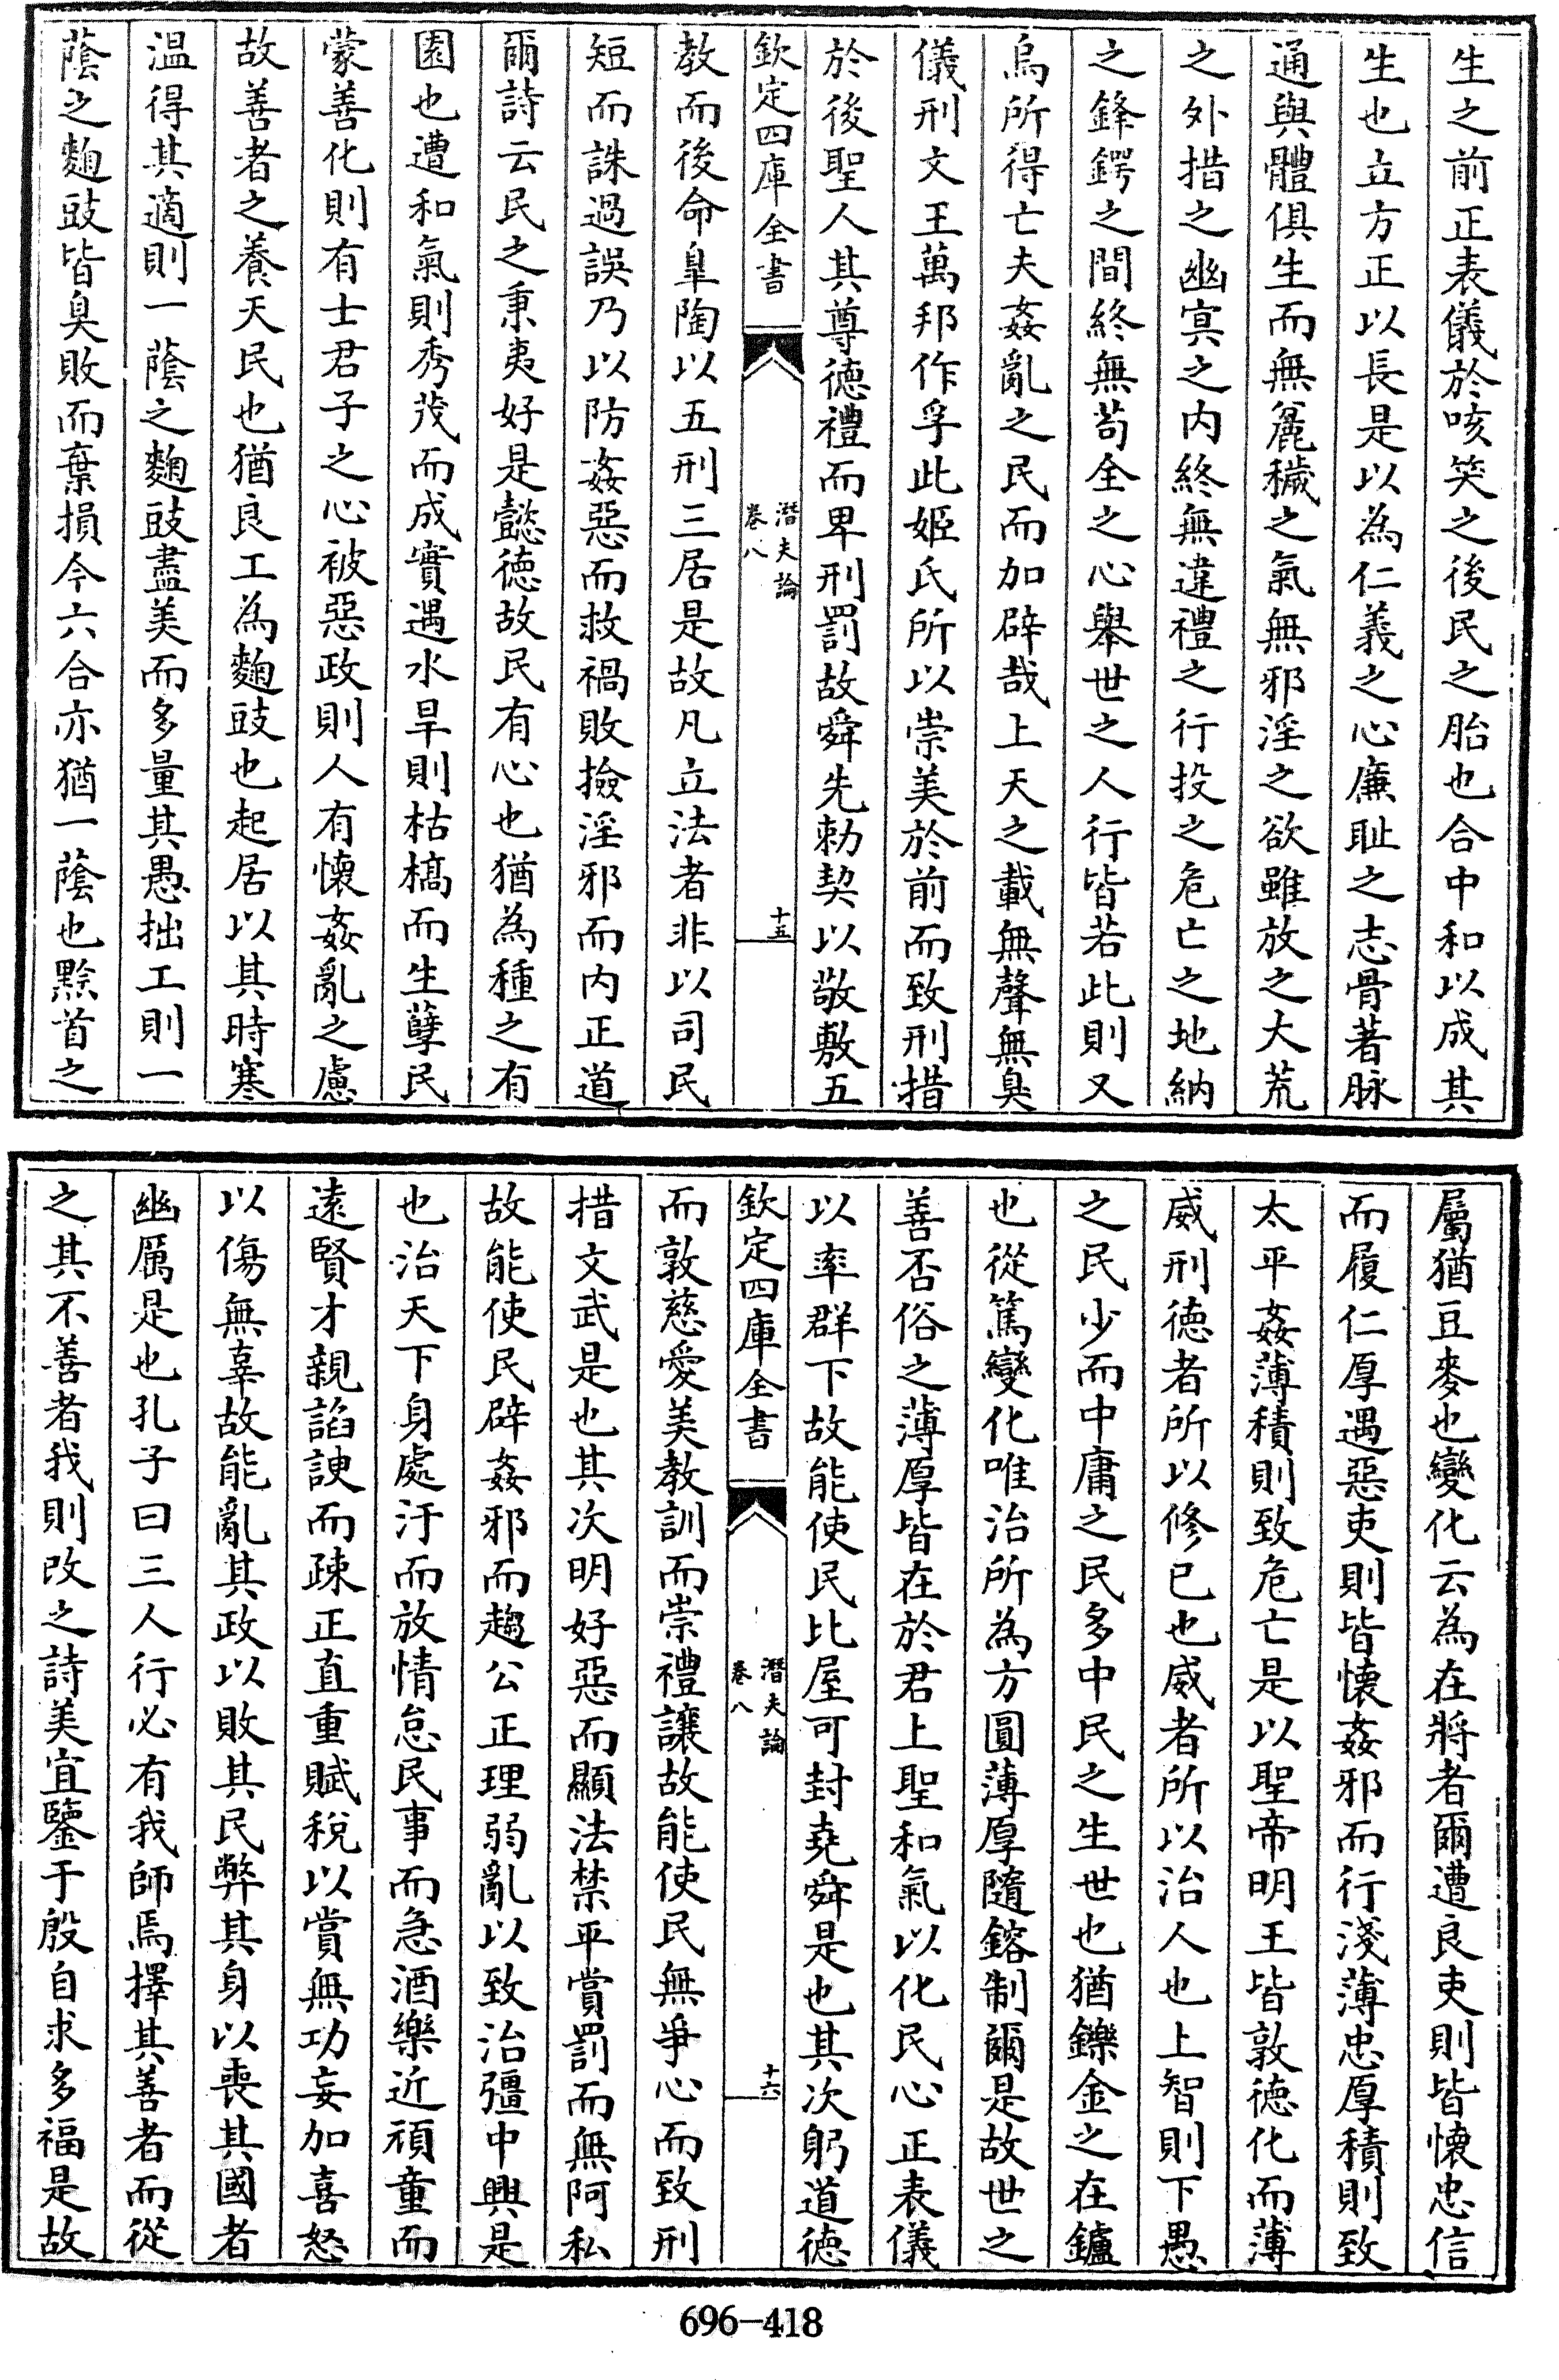 生之前正表儀於咳笑之後民之胎也合中和以成其
生也立方正以長是以為仁義之心廉耻之志骨著脉
通與體俱生而無麄穢之氣無邪淫之欲雖放之大荒
之外措之幽冥之内終無違禮之行投之危亡之地納
之鋒鍔之間終無苟全之心舉世之人行皆若此則又
烏所得亡夫姦亂之民而加辟哉上天之載無聲無臭
儀刑文王萬邦作孚此姬氏所以崇美於前而致刑措
於後聖人其尊德禮而卑刑罰故舜先勅契以敬敷五
欽定四庫全書
潛夫論
卷八
十五
教而後命臯陶以五刑三居是故凡立法者非以司民
短而誅過誤乃以防姦惡而救禍敗撿淫邪而内正道
爾詩云民之秉夷好是懿德故民有心也猶為種之有
園也遭和氣則秀茂而成實遇水旱則枯槁而生孽民
蒙善化則有士君子之心被惡政則人有懷姦亂之慮
故善者之養天民也猶良工為麴豉也起居以其時寒
温得其適則一蔭之麴豉盡美而多量其愚拙工則一
蔭之麴豉皆臭敗而棄損今六合亦猶一蔭也黔首之
屬猶豆麥也變化云為在將者爾遭良吏則皆懷忠信
而履仁厚遇惡吏則皆懷姦邪而行淺薄忠厚積則致
太平姦薄積則致危亡是以聖帝明王皆敦德化而薄
威刑德者所以修已也威者所以治人也上智則下愚
之民少而中庸之民多中民之生世也猶鑠金之在鑪
也從篤變化唯治所為方圓薄厚隨鎔制爾是故世之
善否俗之薄厚皆在於君上聖和氣以化民心正表儀
以率群下故能使民比屋可封堯舜是也其次躬道德
欽定四庫全書
潛夫論
卷八
十六
而敦慈愛美教訓而崇禮讓故能使民無爭心而致刑
措文武是也其次明好惡而顯法禁平賞罰而無阿私
故能使民辟姦邪而趨公正理弱亂以致治彊中興是
也治天下身處汙而放情怠民事而急酒樂近頑童而
遠賢才親諂諛而疎正直重賦稅以賞無功妄加喜怒
以傷無辜故能亂其政以敗其民弊其身以喪其國者
幽厲是也孔子曰三人行必有我師焉擇其善者而從
之其不善者我則改之詩美宜鑒于殷自求多福是故
696-418